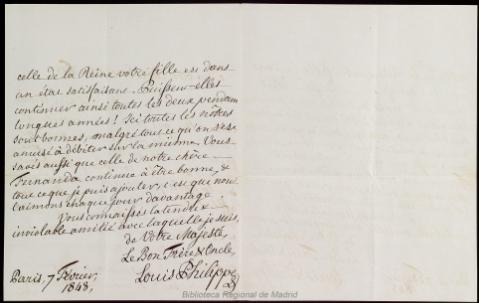 celle de la Reine votre fille est dans
un état satisfaisant. Puissent-elles
continuer ainsi toutes les deux pendant
longues années! Ici toutes les nôtres
sont bonnes, malgré tout ce qu'on s'est
amusé à débiter sur la mienne. Vous
savez aussi que celle de notre chère
Fernanda continue à être bonne, &
tout ce que je puis ajouter, c'est que nous
l'aimons chaque jour davantage.
Vous connaissez la tendre &
inviolable amitié avec laquelle je suis,
de Votre Majesté,
Le Bon Frère & Oncle,
Louis Philippe
Paris, 7 Février,
1848.
Biblioteca Regional de Madrid